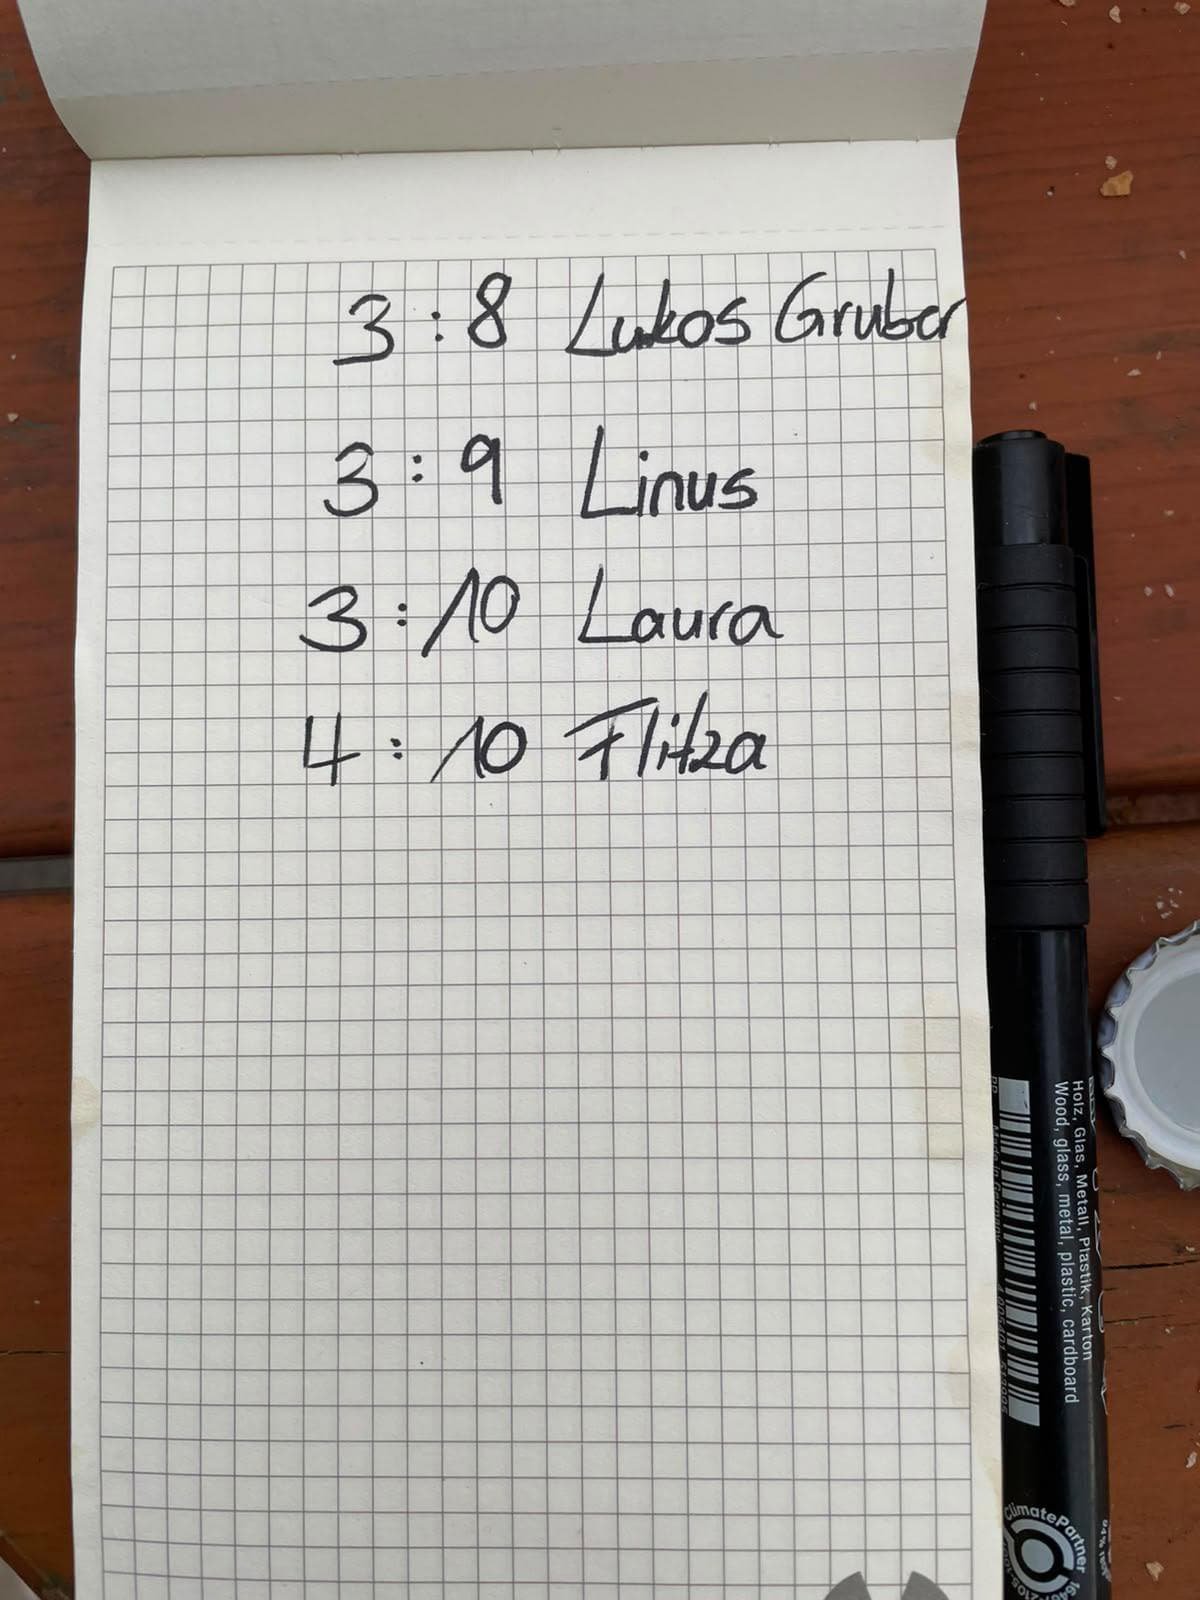 3:8 Lukas Gruber
3:9 Linus
3:10 Laura
4:10 Flitza
Holz, Glas, Metall, Plastik, Karton
Wood, glass, metal, plastic, cardboard
Made in Germany
ClimatePartner